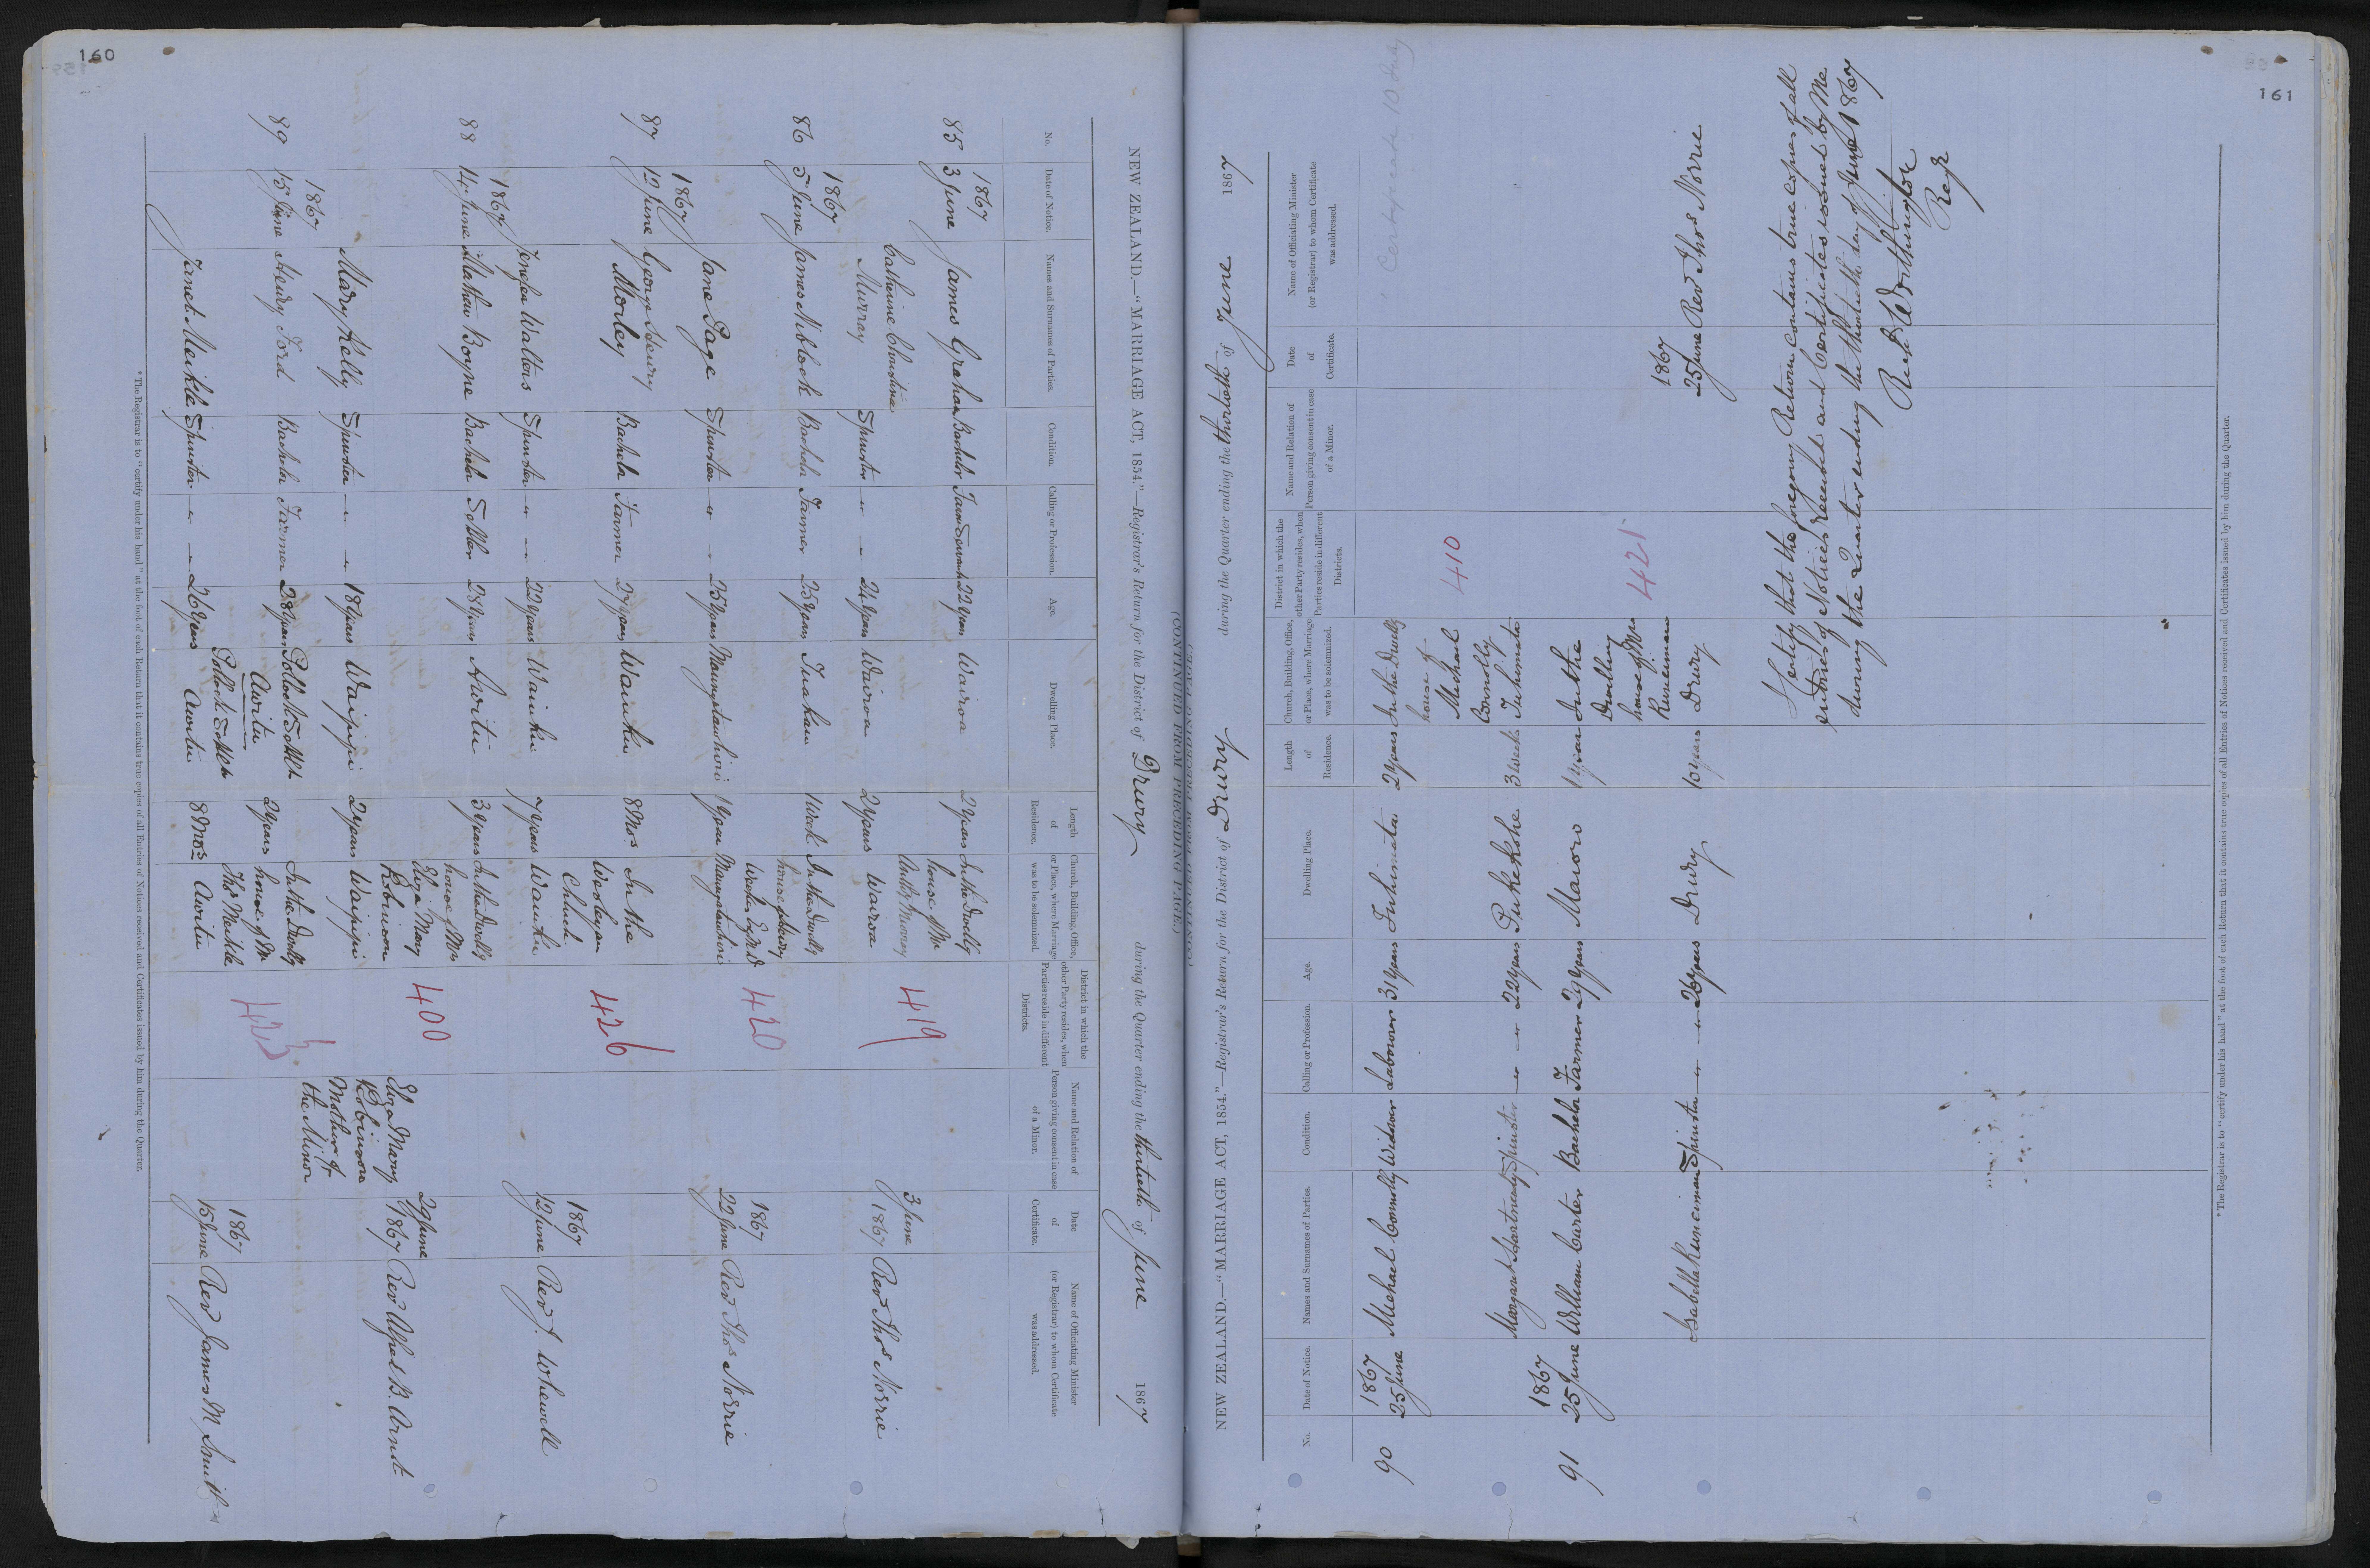 160
NEW ZEALAND.—"MARRIAGE ACT, 1854."—Registrar's Return for the District of Drury during the Quarter ending the thirtieth of June 1867
No.
Date of Notice.
Names and Surnames of Parties.
Condition.
Calling or Profession.
Age.
Dwelling Place.
Length of Residence.
Church, Building, Office, or Place, where Marriage was to be solemnized.
District in which the other Party resides, when Parties reside in different Districts.
Name and Relation of Person giving consent in case of a Minor.
Date of Certificate.
Name of Officiating Minister (or Registrar) to whom Certificate was addressed.
1867
85 3 June James Graham Bachelor Farm Servant 22 years Wairoa 2 years In the Dwelling
house of Mr
Murray
419
Catherine Christina
Murray Spinster " " 24 years Wairoa 2 years Wairoa
3 June
1867 Rev Thos Norrie
1867
86 5 June James Niblock Bachelor Farmer 25 years Tuakau 1 Week In the Dwelling
house of Henry
Weeks Esq M D
420
Jane Page Spinster " " 25 years Maungatawhiri 1 year Maungatawhiri
1867
22 June Rev Thos Norrie
1867
87 12 June George Henry
Morley Bachelor Farmer 27 years Waiuku 8 Mos In the
Wesleyan
Church
426
Waltors Spinster " " 22 years Waiuku 7 years Waiuku
1867
12 June Rev J. Whewell
1867
88 14 June Mathew Boyne Bachelor Settler 28 years Awitu 3 years In the Dwelling
house of Mrs
Eliza Mary
Robinson
400
Mary Kelly Spinster " " 18 years Waipipi 2 years Waipipi
Eliza Mary
Robinson
Mother of
the Minor
29 June
1867 Rev
1867
89 15 June Henry Ford Bachelor Farmer 28 years Pollock Settlt
Awitu 2 years In the Dwelling
house of Mr
Thos Meikle
423
Janet Meikle Spinster " " 26 years Pollock Settlt
Awitu 8 Mos Awitu
1867
15 June Rev James M
* The Registrar is to "certify under his hand" at the foot of each Return that it contains true copies of all Entries of Notices received and Certificates issued by him during the Quarter.
161
(CONTINUED FROM PRECEDING PAGE.)
NEW ZEALAND.—"MARRIAGE ACT, 1854."—Registrar's Return for the District of Drury during the Quarter ending the thirtieth of June 1867
No.
Date of Notice.
Names and Surnames of Parties.
Condition.
Calling or Profession.
Age.
Dwelling Place.
Length of Residence.
Church, Building, Office, or Place, where Marriage was to be solemnized.
District in which the other Party resides, when Parties reside in different Districts.
Name and Relation of Person giving consent in case of a Minor.
Date of Certificate.
Name of Officiating Minister (or Registrar) to whom Certificate was addressed.
1867
90 25 June Michael Connolly Widower Laborer 31 years Tuhimata 2 years In the Dwelling
house of
Michael
Connolly
Tuhimata
410
Certificate 10 July
Margaret Spinster " " 22 years Pukekohe 3 weeks
1867
91 25 June William Carter Bachelor Farmer 29 years Maioro 1 year In the
Dwelling
house of Mr
Runciman
Drury
421
Isabella Runciman Spinster " " 26 years Drury 10 years
1867
25 June Rev Thos Norrie
I certify that the foregoing Return contains true copies of all
entries of Notices received and Certificates issued by Me
during the Quarter ending the thirtieth day of June 1867
Worthington
Regr
* The Registrar is to "certify under his hand" at the foot of each Return that it contains true copies of all Entries of Notices received and Certificates issued by him during the Quarter.